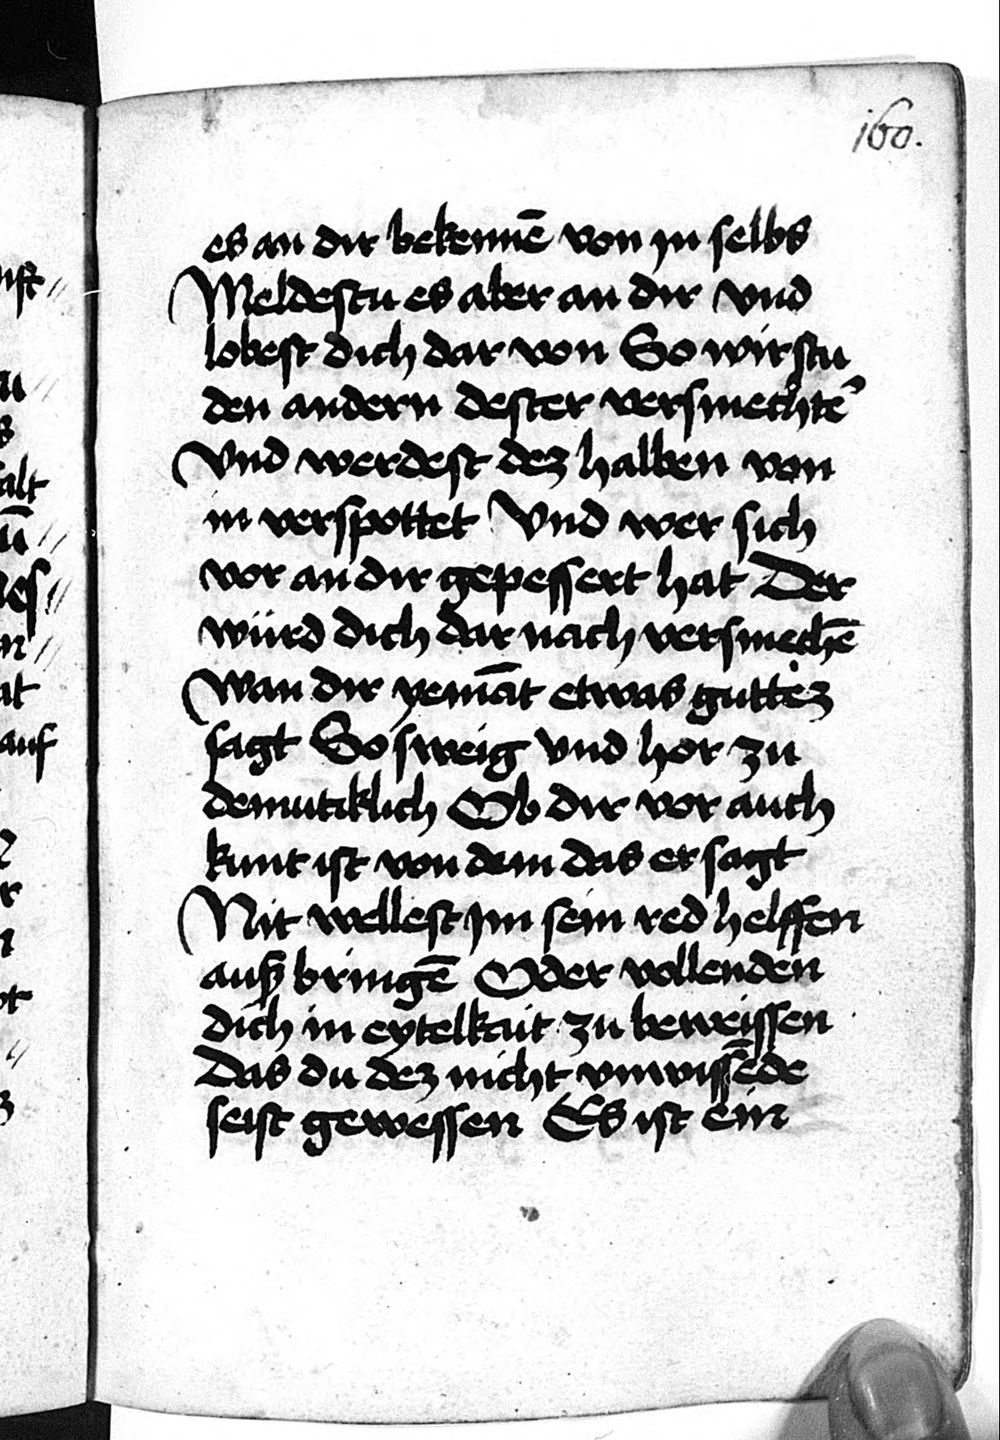 160.
es an dir bekennē von jn selbs
Meldestu es aber an dir vnd
lobest dich dar von So wirstu
den andern dester versmechte᾽
Vnd werdest dez halben von
in verspottet Vnd wer sich
vor an dir gepessert hat Der
würd dich dar nach versmechē
Wan dir yemāt etwas guttez
sagt So sweig vnd hor zu
demutiklich Ob dir vor auch
kunt ist von dem das er sagt
Nit wellest jm sein red helffen
auß bringē Oder vollenden
dich in eytelkait zu beweissen
Das du dez nicht vnwissēde
seist gewessen Es ist ein